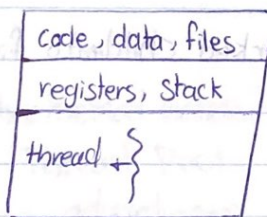 code, data, files
registers, stack
thread